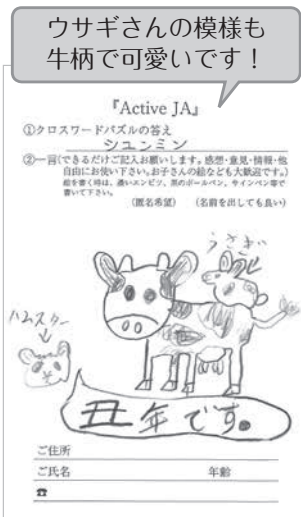 ウサギさんの模様も
牛柄で可愛いです！
『Active JA』
①クロスワードパズルの答え
シュンミン
②一言(できるだけご記入お願いします。感想・意見・情報・他
自由にお使い下さい。お子さんの絵なども大歓迎です。)
絵を書く時は、濃いエンピツ、黒のボールペン、サインペン等で
書いて下さい。
(匿名希望) (名前を出しても良い)
うさぎ
ハムスター
丑年です。
ご住所
ご氏名 年齢
☎